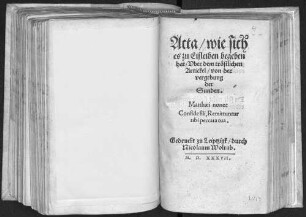 Acta / wie sich
es zu Eisleben begeben
hat / Vber dem tröstlichen
Artickel / von der
vergebung
der
Sunden.
Matthei nono:
Confide fili, Remittuntur
tibi peccata tua.
Gedruckt zu Leiptzigk / durch
Nicolaum Wolrab.
M. D. XXXVII.